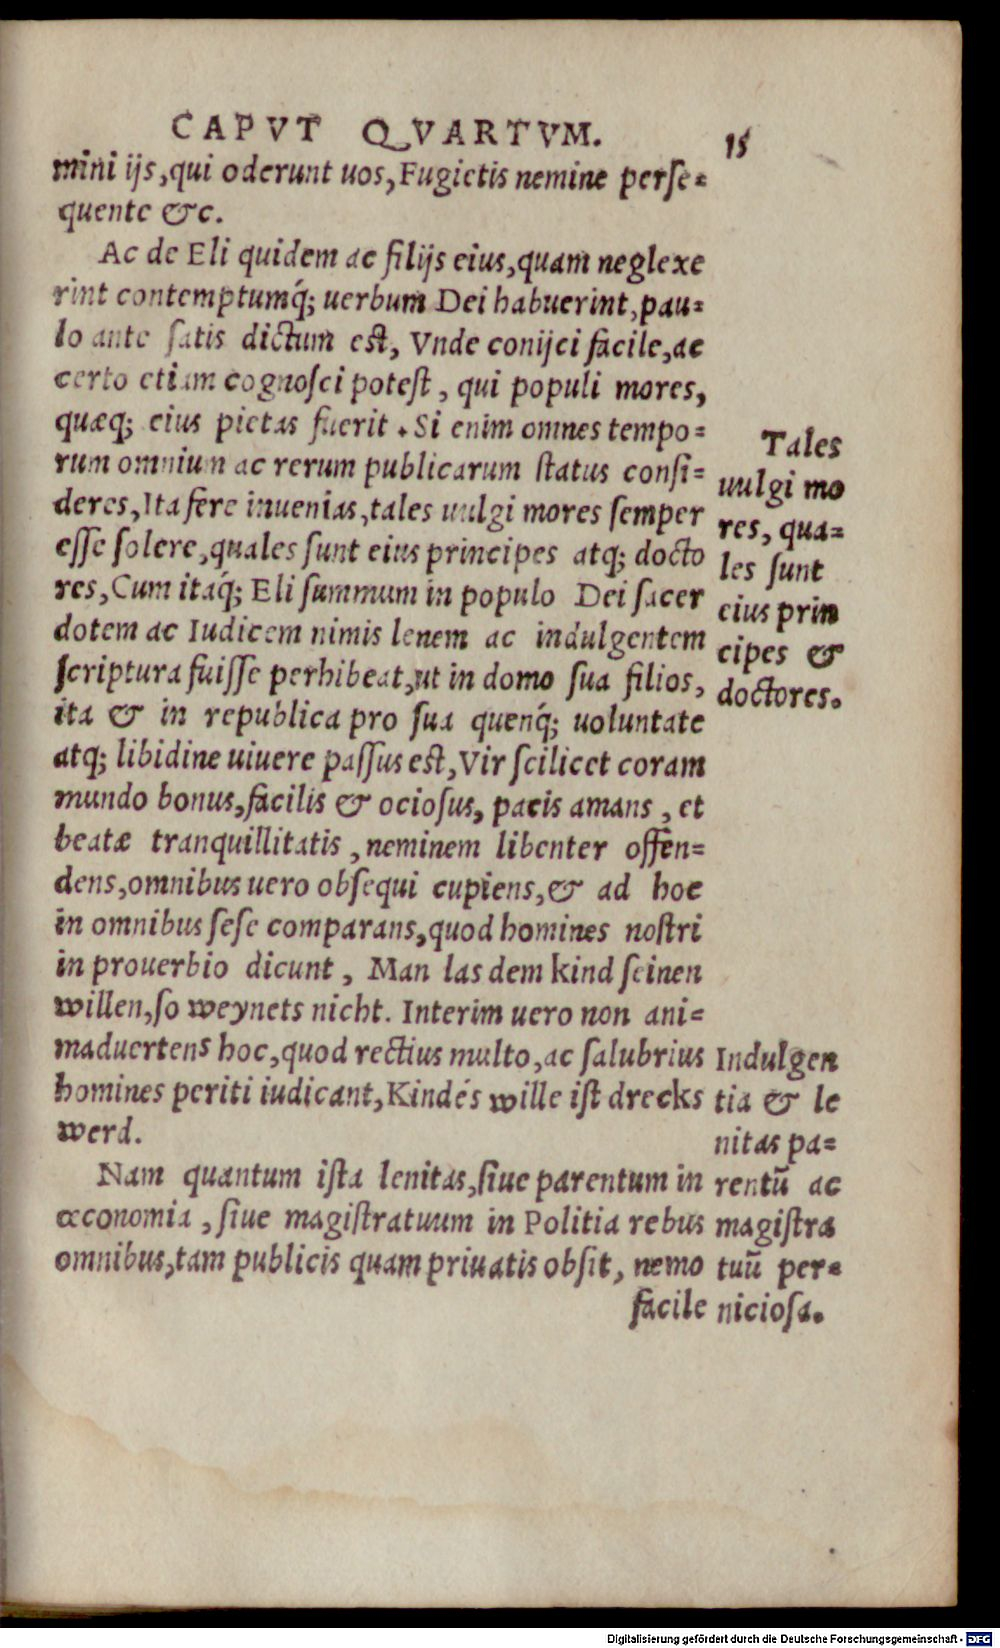 CAPVT QVARTVM. 15
mini ijs, qui oderunt uos, Fugietis nemine perse=
quente &c.
Ac de Eli quidem ac filijs eius, quam neglexe
rint contemptumq́; uerbum Dei habuerint, pau=
lo ante satis dictum est, Vnde conijci facile, ac
certo etiam cognosci potest, qui populi mores,
quæq; eius pietas fuerit. Si enim omnes tempo=
rum omnium ac rerum publicarum status consi=
deres, Ita fere inuenias, tales uulgi mores semper
esse solere, quales sunt eius principes atq; docto
res, Cum itaq́; Eli summum in populo Dei sacer
dotem ac Iudicem nimis lenem ac indulgentem
scriptura fuisse perhibeat, ut in domo sua filios,
ita & in republica pro sua quenq́; uoluntate
atq; libidine uiuere passus est, Vir scilicet coram
mundo bonus, facilis & ociosus, pacis amans, et
beatæ tranquillitatis, neminem libenter offen=
dens, omnibus uero obsequi cupiens, & ad hoc
in omnibus sese comparans, quod homines nostri
in prouerbio dicunt, Man las dem kind seinen
willen, so weynets nicht. Interim uero non ani=
maduertens hoc, quod rectius multo, ac salubrius
homines periti iudicant, Kindés wille ist drecks
werd.
Nam quantum ista lenitas, siue parentum in
œconomia, siue magistratuum in Politia rebus
omnibus, tam publicis quam priuatis obsit, nemo
facile
Tales
uulgi mo
res, qua=
les sunt
eius prin
cipes &
doctores.
Indulgen
tia & le
nitas pa=
rentũ ac
magistra
tuũ per=
niciosa.
Digitalisierung gefördert durch die Deutsche Forschungsgemeinschaft - DFG